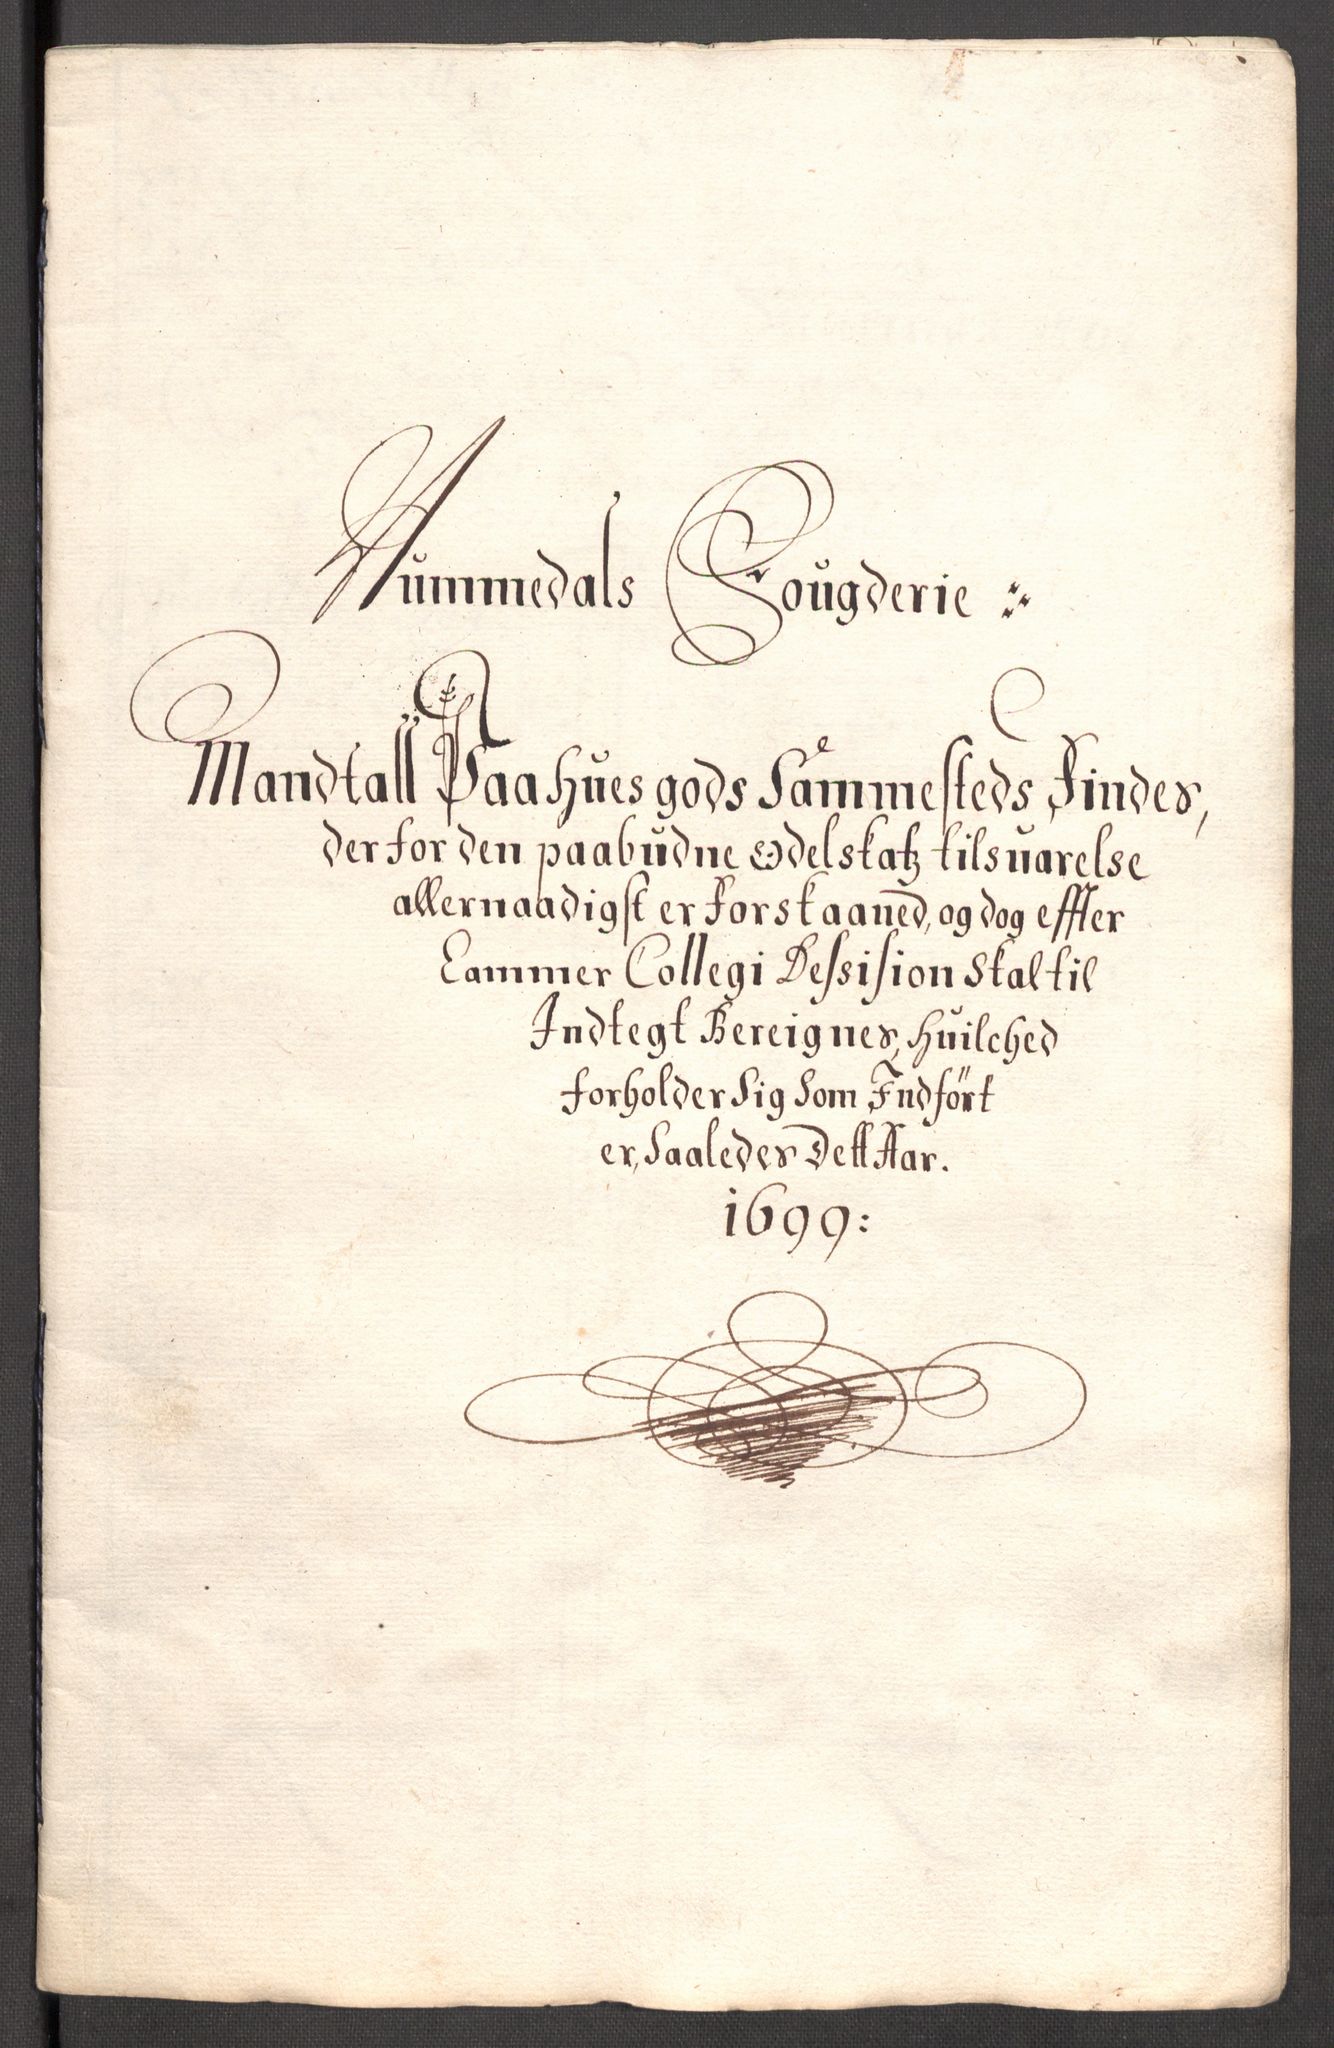 Nummedals Fougderie
Mandtall Paa Hues gods Sammesteds Findes,
der for den paabudne odelskatz tilsvarelse
allernaadigst er Forskaaned, og dog effter
Cammer Collegi Dessision Skal til
Indtegt Bereignes, Huilched
forholder Sig Som Indfört
er, Saaledes Dett Aar.
1699: